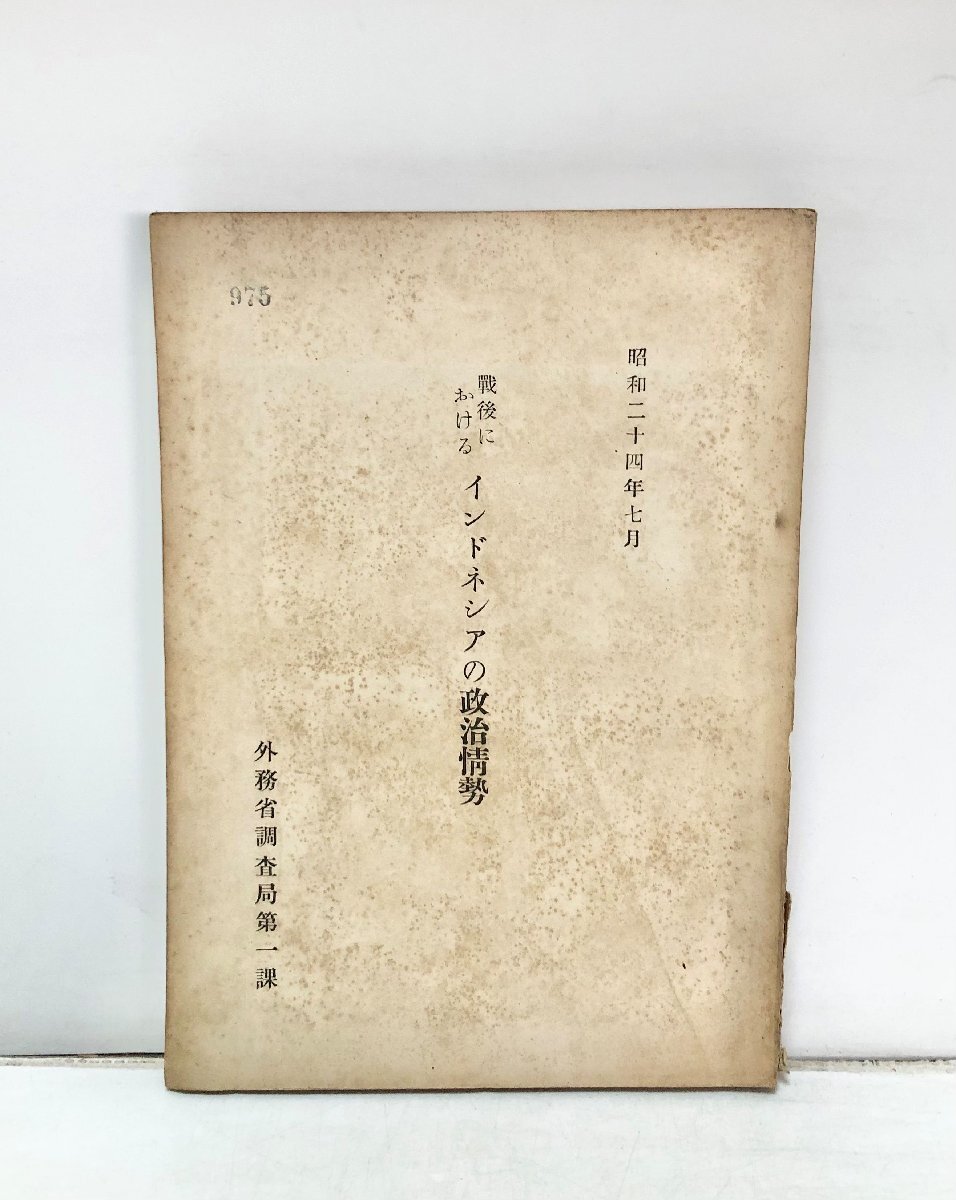 975
昭和二十四年七月
戰後に
おける
インドネシアの政治情勢
外務省調査局第一課